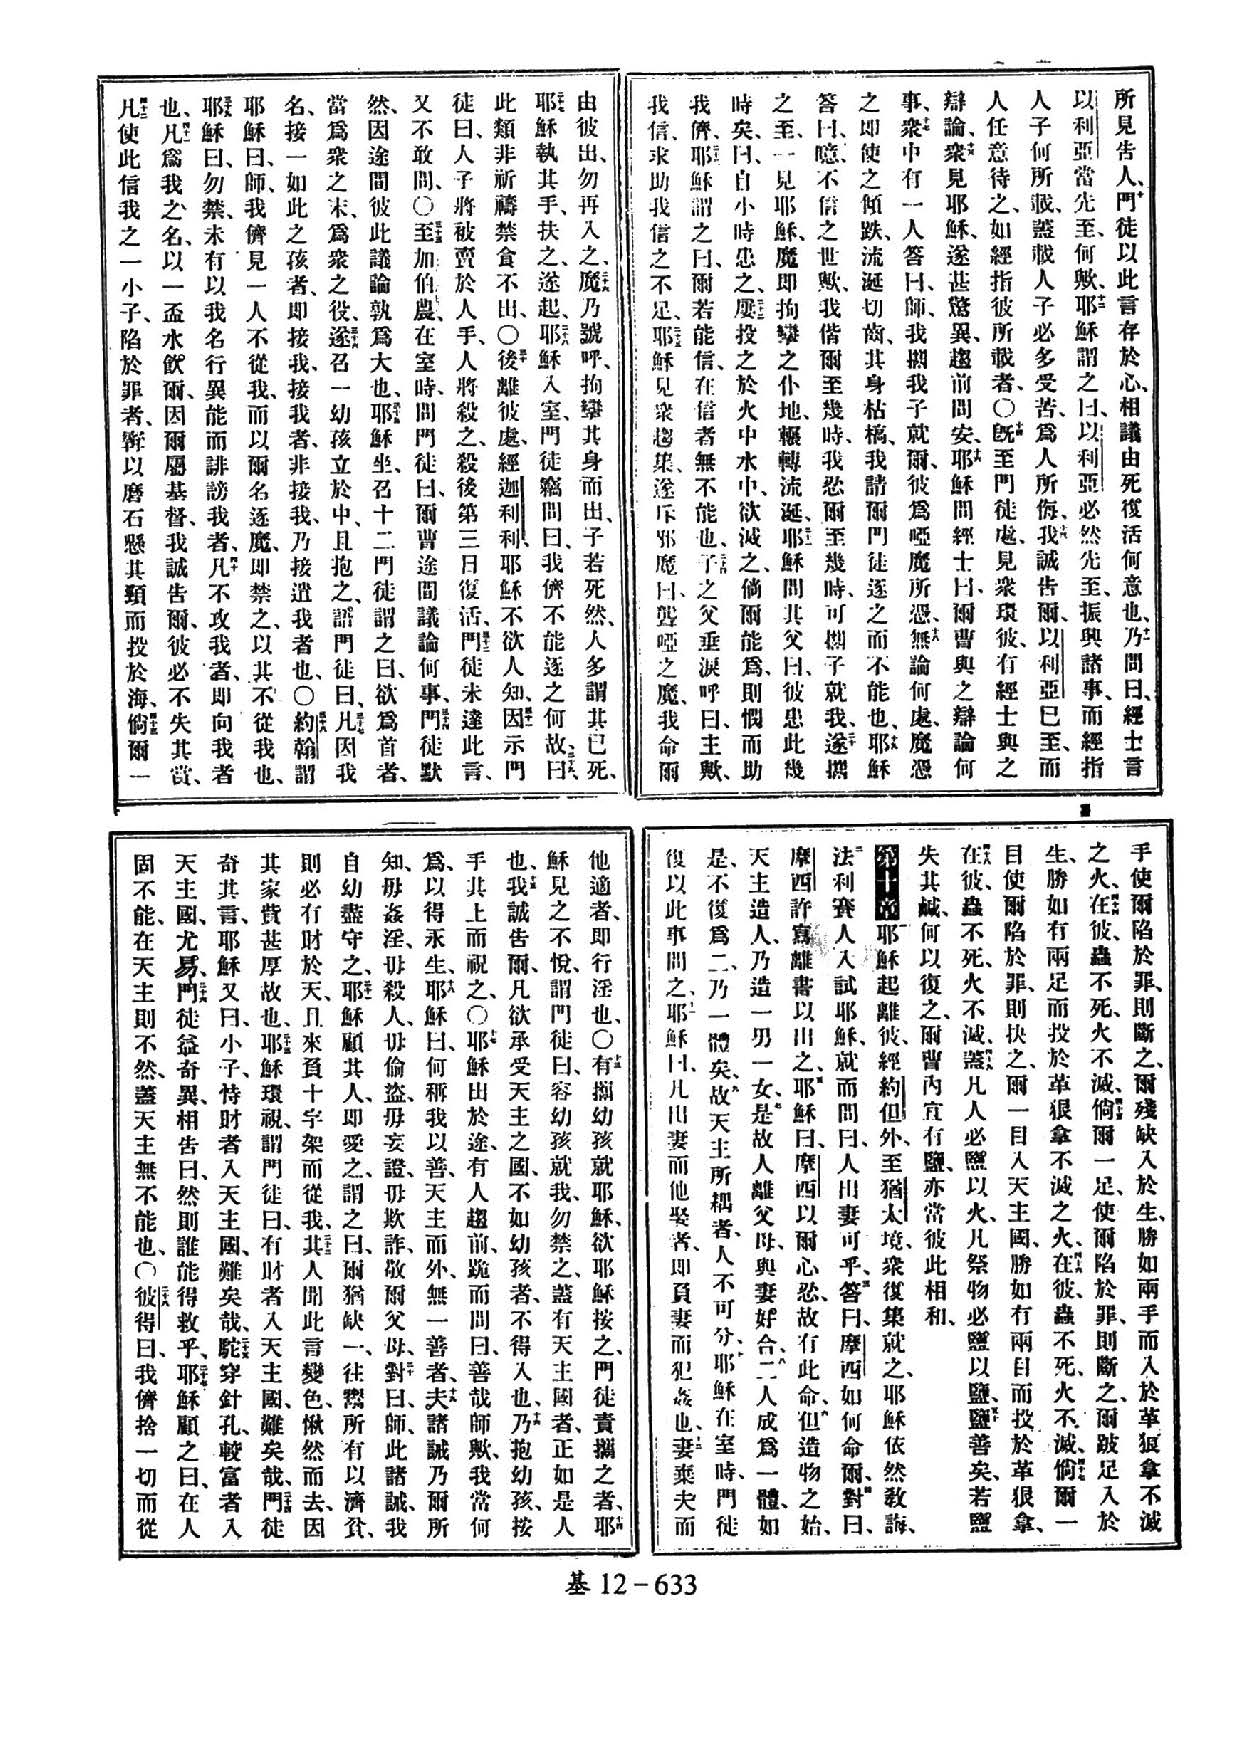 所見告人、門徒以此言存於心、相議由死復活何意也、乃問曰、經士言
以利亞當先至、何歟、耶穌謂之曰、以利亞必然先至、振興諸事、而經指
人子何所載、蓋載人子必多受苦、爲人所侮、我誠告爾、以利亞已至、而
人任意待之、如經指彼所載者、○旣至門徒處、見衆環彼、有經士與之
辯論、衆見耶穌、遂甚驚異、趨前問安、耶穌問經士曰、爾曹與之辯論何
事、衆中有一人答曰、師、我攜我子就爾、彼爲啞魔所憑、無論何處、魔憑
之即使之傾跌、流涎切齒、其身枯槁、我請爾門徒逐之而不能也、耶穌
答曰、噫、不信之世歟、我偕爾至幾時、我忍爾至幾時、可攜子就我、遂攜
之至、一見耶穌、魔即拘攣之仆地、輾轉流涎、耶穌問其父曰、彼患此幾
時矣、曰、自小時患之、屢投之於火中水中、欲滅之、倘爾能爲、則憫而助
我儕、耶穌謂之曰、爾若能信、在信者無不能也、子之父垂淚呼曰、主歟、
我信、求助我信之不足、耶穌見衆趨集、遂斥邪魔曰、聾啞之魔、我命爾
由彼出、勿再入之、魔乃號呼、拘攣其身而出、子若死然、人多謂其已死、
耶穌執其手、扶之、遂起、耶穌入室、門徒竊問曰、我儕不能逐之何故、曰、
此類非祈禱禁食不出、○後離彼處、經迦利利、耶穌不欲人知、因示門
徒曰、人子將被賣於人手、人將殺之、殺後第三日復活、門徒未達此言、
又不敢問、○至加伯農、在室時、問門徒曰、爾曹途間議論何事、門徒默
然、因途間彼此議論孰爲大也、耶穌坐、召十二門徒謂之曰、欲爲首者、
當爲衆之末、爲衆之役、遂召一幼孩立於中、且抱之、語門徒曰、凡因我
名、接一如此之孩者、即接我、接我者、非接我、乃接遣我者也、○約翰謂
耶穌曰、師、我儕見一人不從我、而以爾名逐魔、即禁之、以其不從我也、
耶穌曰、勿禁、未有以我名行異能而誹謗我者、凡不攻我者、即向我者
也、凡爲我之名、以一盃水飲爾、因爾屬基督、我誠告爾、彼必不失其賞、
凡使此信我之一小子、陷於罪者、寧以磨石懸其頸而投於海、倘爾一
手使爾陷於罪、則斷之、爾殘缺入於生、勝如兩手而入於革狠拿不滅
之火、在彼、蟲不死、火不滅、倘爾一足、使爾陷於罪、則斷之、爾跛足入於
生、勝如有兩足而投於革狠拿不滅之火、在彼、蟲不死、火不滅、倘爾一
目使爾陷於罪、則抉之、爾一目入天主國、勝如有兩目而投於革狠拿、
在彼、蟲不死、火不滅、蓋凡人必鹽以火、凡祭物必鹽以鹽、鹽善矣、若鹽
失其鹹、何以復之、爾曹內宜有鹽、亦當彼此相和、
第十章 耶穌起離彼、經約但外、至猶太境、衆復集就之、耶穌依然敎誨、
法利賽人入試耶穌、就而問曰、人出妻可乎、答曰、摩西如何命爾、對曰、
摩西許寫離書以出之、耶穌曰、摩西以爾心忍、故有此命、但造物之始、
天主造人、乃造一男一女、是故人離父母、與妻好合、二人成爲一體、如
是、不復爲二、乃一體矣、故天主所耦者、人不可分、耶穌在室時、門徒
復以此事問之、耶穌曰、凡出妻而他娶者、即負妻而犯姦也、妻棄夫而
他適者、即行淫也、○有攜幼孩就耶穌、欲耶穌按之、門徒責攜之者、耶
穌見之不悅、謂門徒曰、容幼孩就我、勿禁之、蓋有天主國者、正如是人
也、我誠告爾、凡欲承受天主之國、不如幼孩者、不得入也、乃抱幼孩、按
手其上而祝之、○耶穌出於途、有人趨前、跪而問曰、善哉師歟、我當何
爲、以得永生、耶穌曰、何稱我以善、天主而外、無一善者、夫諸誡乃爾所
知、毋姦淫、毋殺人、毋偷盜、毋妄證、毋欺詐、敬爾父母、對曰、師、此諸誡、我
自幼盡守之、耶穌顧其人、即愛之、謂之曰、爾猶缺一、往鬻所有以濟貧、
則必有財於天、且來負十字架而從我、其人聞此言變色、愀然而去、因
其家貲甚厚故也、耶穌環視、謂門徒曰、有財者入天主國、難矣哉、門徒
奇其言、耶穌又曰、小子、恃財者入天主國、難矣哉、駝穿針孔、較富者入
天主國、尤易、門徒益奇異、相告曰、然則誰能得救乎、耶穌顧之曰、在人
固不能、在天主則不然、蓋天主無不能也、○彼得曰、我儕捨一切而從
基 12－633